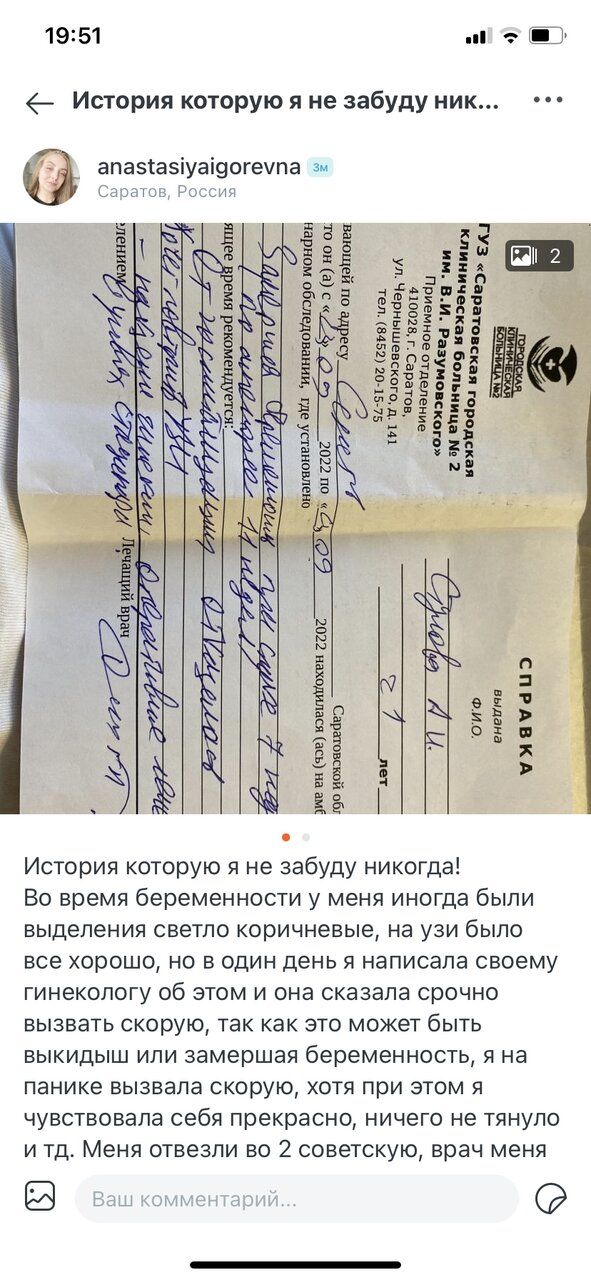 19:51
История которую я не забуду ник...
anastasiyaigorevna 3м
Саратов, Россия
2
ГОРОДСКАЯ
КЛИНИЧЕСКАЯ
БОЛЬНИЦА №2
ГУЗ «Саратовская городская
клиническая больница № 2
им. В.И. Разумовского»
Приемное отделение
410028, г. Саратов,
ул. Чернышевского, д. 141
тел. (8452) 20-15-75
СПРАВКА
выдана
Ф.И.О.
А. И.
21 лет
вающей по адресу Саратов Саратовской обл
то он (а) с « 09 2022 по « 09 2022 находилася (ась) на амб
нарном обследовании, где установлено
Замершая беременность при сроке 7 нед
11 недель)
ящее время рекомендуется:
От госпитализации отказалась
УЗИ
лением Лечащий врач
История которую я не забуду никогда!
Во время беременности у меня иногда были
выделения светло коричневые, на узи было
все хорошо, но в один день я написала своему
гинекологу об этом и она сказала срочно
вызвать скорую, так как это может быть
выкидыш или замершая беременность, я на
панике вызвала скорую, хотя при этом я
чувствовала себя прекрасно, ничего не тянуло
и тд. Меня отвезли во 2 советскую, врач меня
Ваш комментарий...